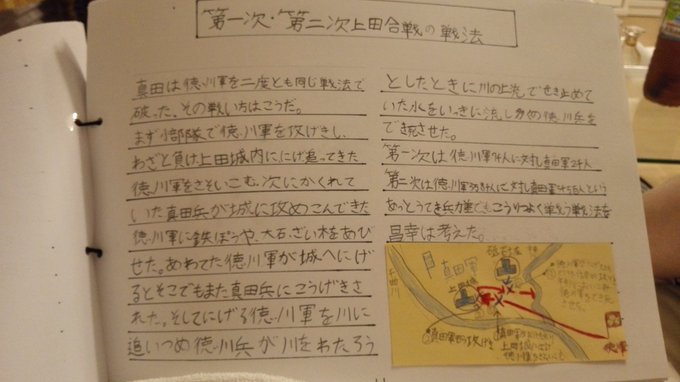 第一次・第二次上田合戦の戦法
真田は徳川軍を二度とも同じ戦法で
破った。その戦い方はこうだ。
まず小部隊で徳川軍を攻げきし、
わざと負け上田城内ににげ追ってきた
徳川軍をさそいこむ。次にかくれて
いた真田兵が城に攻めこんできた
徳川軍に鉄ぽうや、大石、ざい木をあび
せた。あわてた徳川軍が城へにげ
るとそこでもまた真田兵にこうげきさ
れた。そしてにげる徳川軍を川に
追いつめ徳川兵が川をわたろう
としたときに川の上流でせき止めて
いた水をいっきに流し
徳川兵を
でき死させた。
第一次は徳川軍7千人に対し真田軍2千人
第二次は徳川軍3万8千人に対し真田軍
という
あっとうてき兵力差でもこうりつよく戦う戦法を
昌幸は考えた。
千曲川
真田軍
上田城
徳川軍